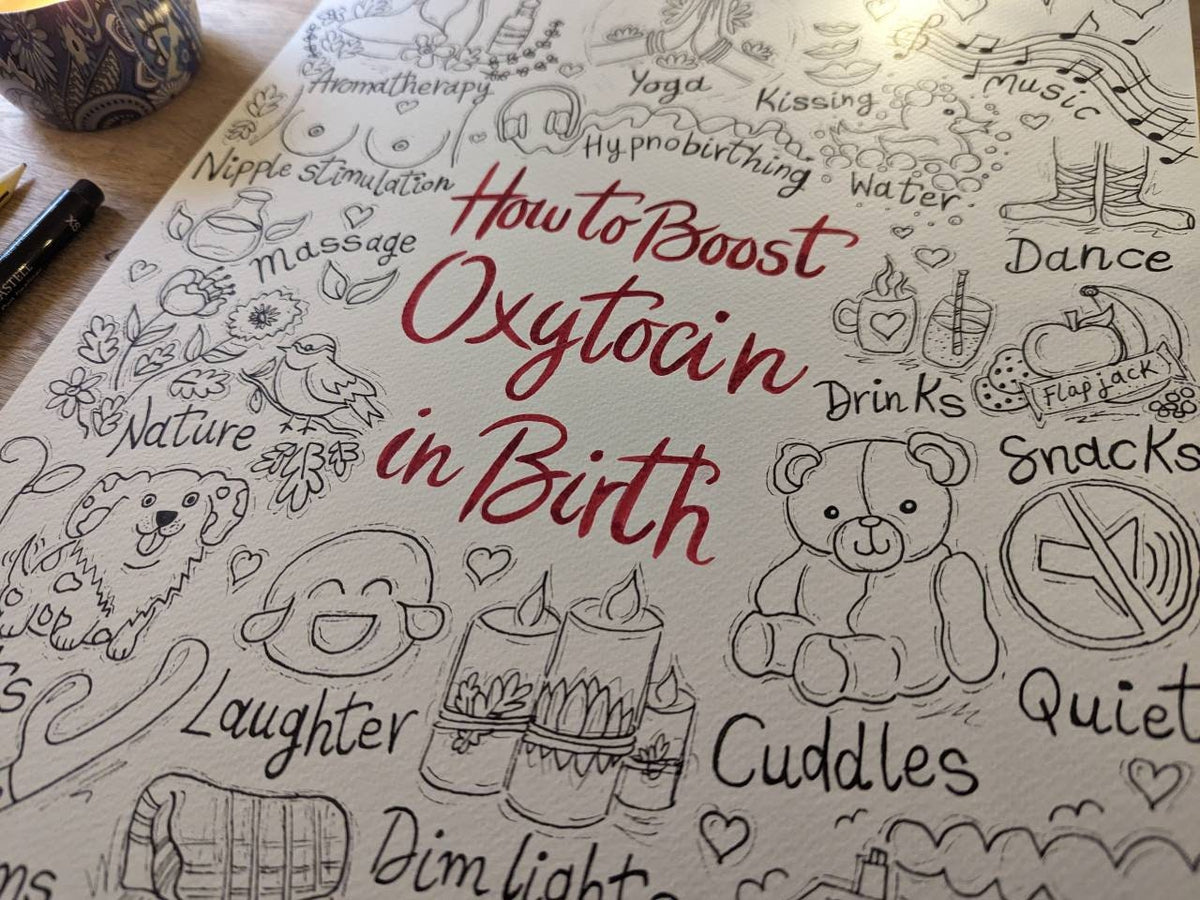 Aromatherapy
Yoga
Kissing
Music
Nipple stimulation
Hypnobirthing
Water
How to Boost
Oxytocin
in Birth
Massage
Dance
Drinks
Flapjack
Snacks
Nature
Laughter
Cuddles
Quiet
Dim light
XS